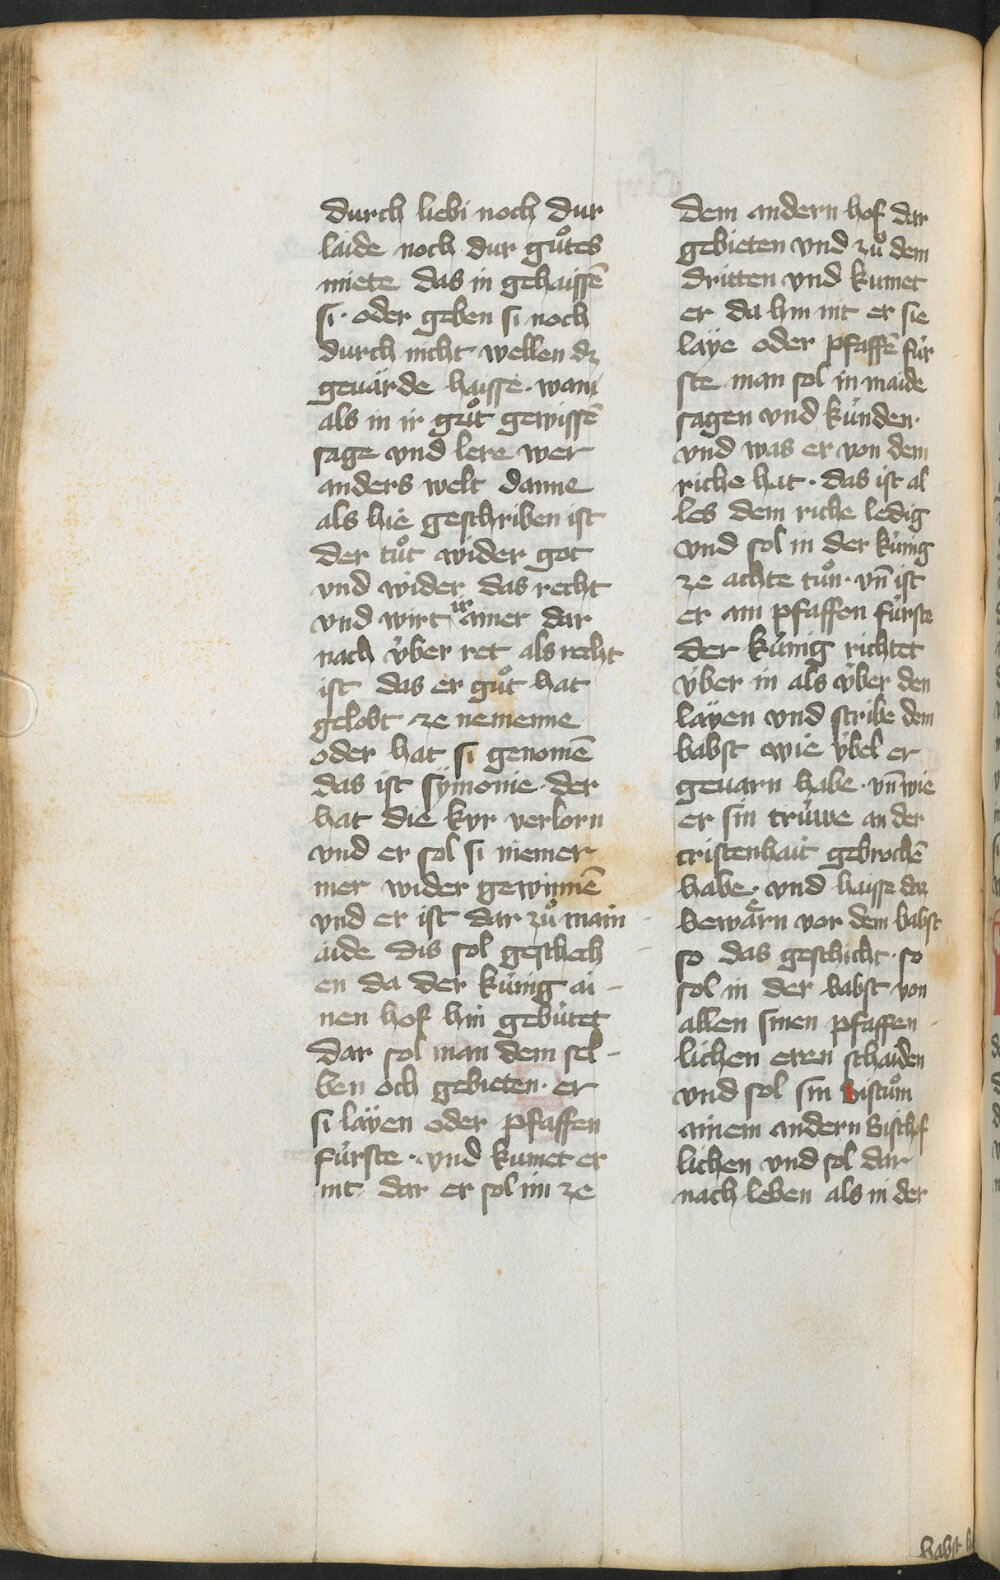 durch liebi noch dur
laide noch dur guͦtes
miete das in gehaissē
si· oder geben si noch
durch nicht wellen dz
geuärde haisse· wann
als in ir guͦt gewissē
sage vnd lere wer
anders welt danne
als hie geschriben ist
der tuͦt wider got
vnd wider das recht
vnd wirt ir ainer dar
nach v̈ber ret als recht
ist das er guͦt hat
gelobt ze nemenne
oder hat si genomē
das ist sÿmonie· der
hat die kvr verlorn
vnd er sol si niemer
mer wider gewinnē
vnd er ist dar zuͦ main
aide dis sol geschech
en da der künig ai-
nen hof hin gebütet
dar sol man dem sel-
ben och gebieten· er
si laÿen oder pfaffen
fürste· vnd kumet er
nit dar er sol im ze
dem andern hof dar
gebieten vnd zuͦ dem
dritten vnd kumet
er da hin nit er sie
laÿe oder pfaffē für
ste man sol in maide
sagen vnd künden·
vnd was er von dem
riche hat· das ist al
les dem riche ledig
vnd sol in der künig
ze achte tuͦn· vn̄ ist
er ain pfaffen fürste
der künig richtet
v̈ber in als v̈ber den
laÿen vnd scribe dem
babst wie ÿbel er
geuarn habe· vn̄ wie
er sin trüwe an der
cristenhait gebrochē
habe· vnd haisse daz
bewärn vor dem babst
so das geschicht· so
sol in der babst von
allen sinen pfaffen
lichen eren schaiden
vnd sol sin bistuͦm
ainem andern bischof
lichen vnd sol dar
nach leben als in der
babst